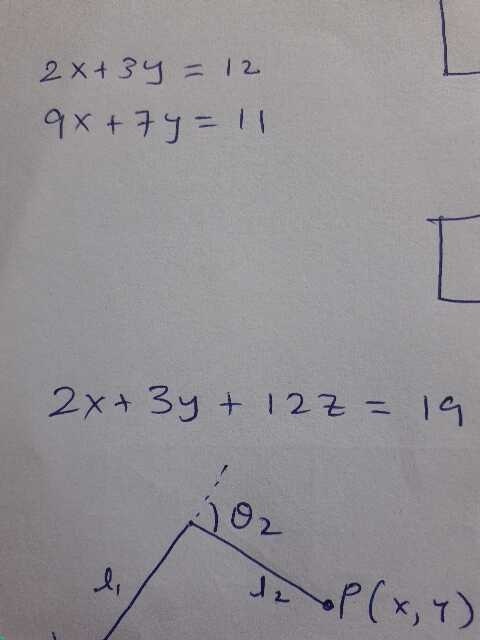 2x+3y = 12
9x+7y = 11
2x+3y+12z = 19
θ2
l1
l2
P(x, y)